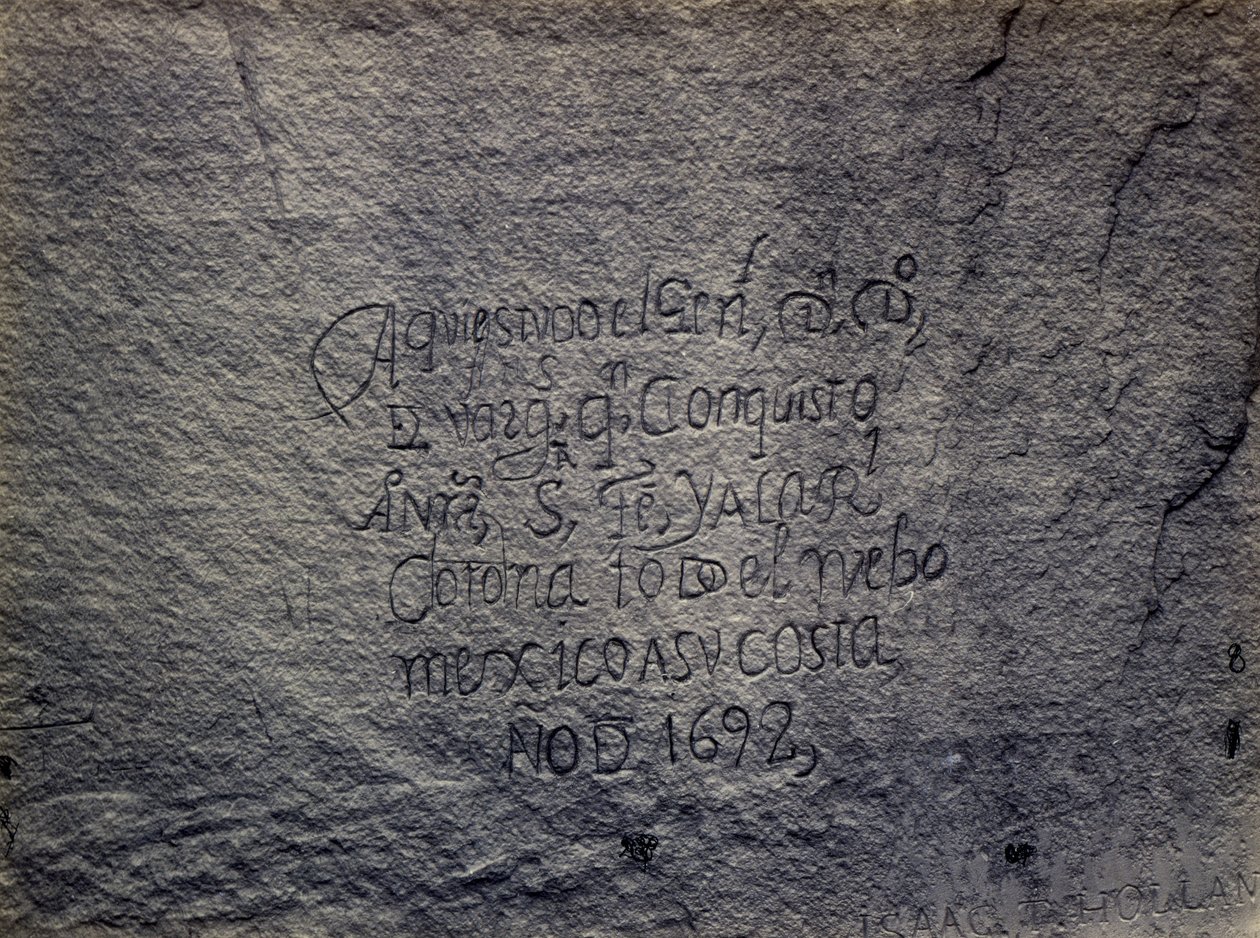 Aqui estuvo el Genl, Dn. Do,
De Vargs, qn, Conquisto
A Nra Sa, S, Fe, Y A la Rl
Corona todo el nuebo
mexico A su costa
Año D 1692,
8
ISAAC T HOLLAN